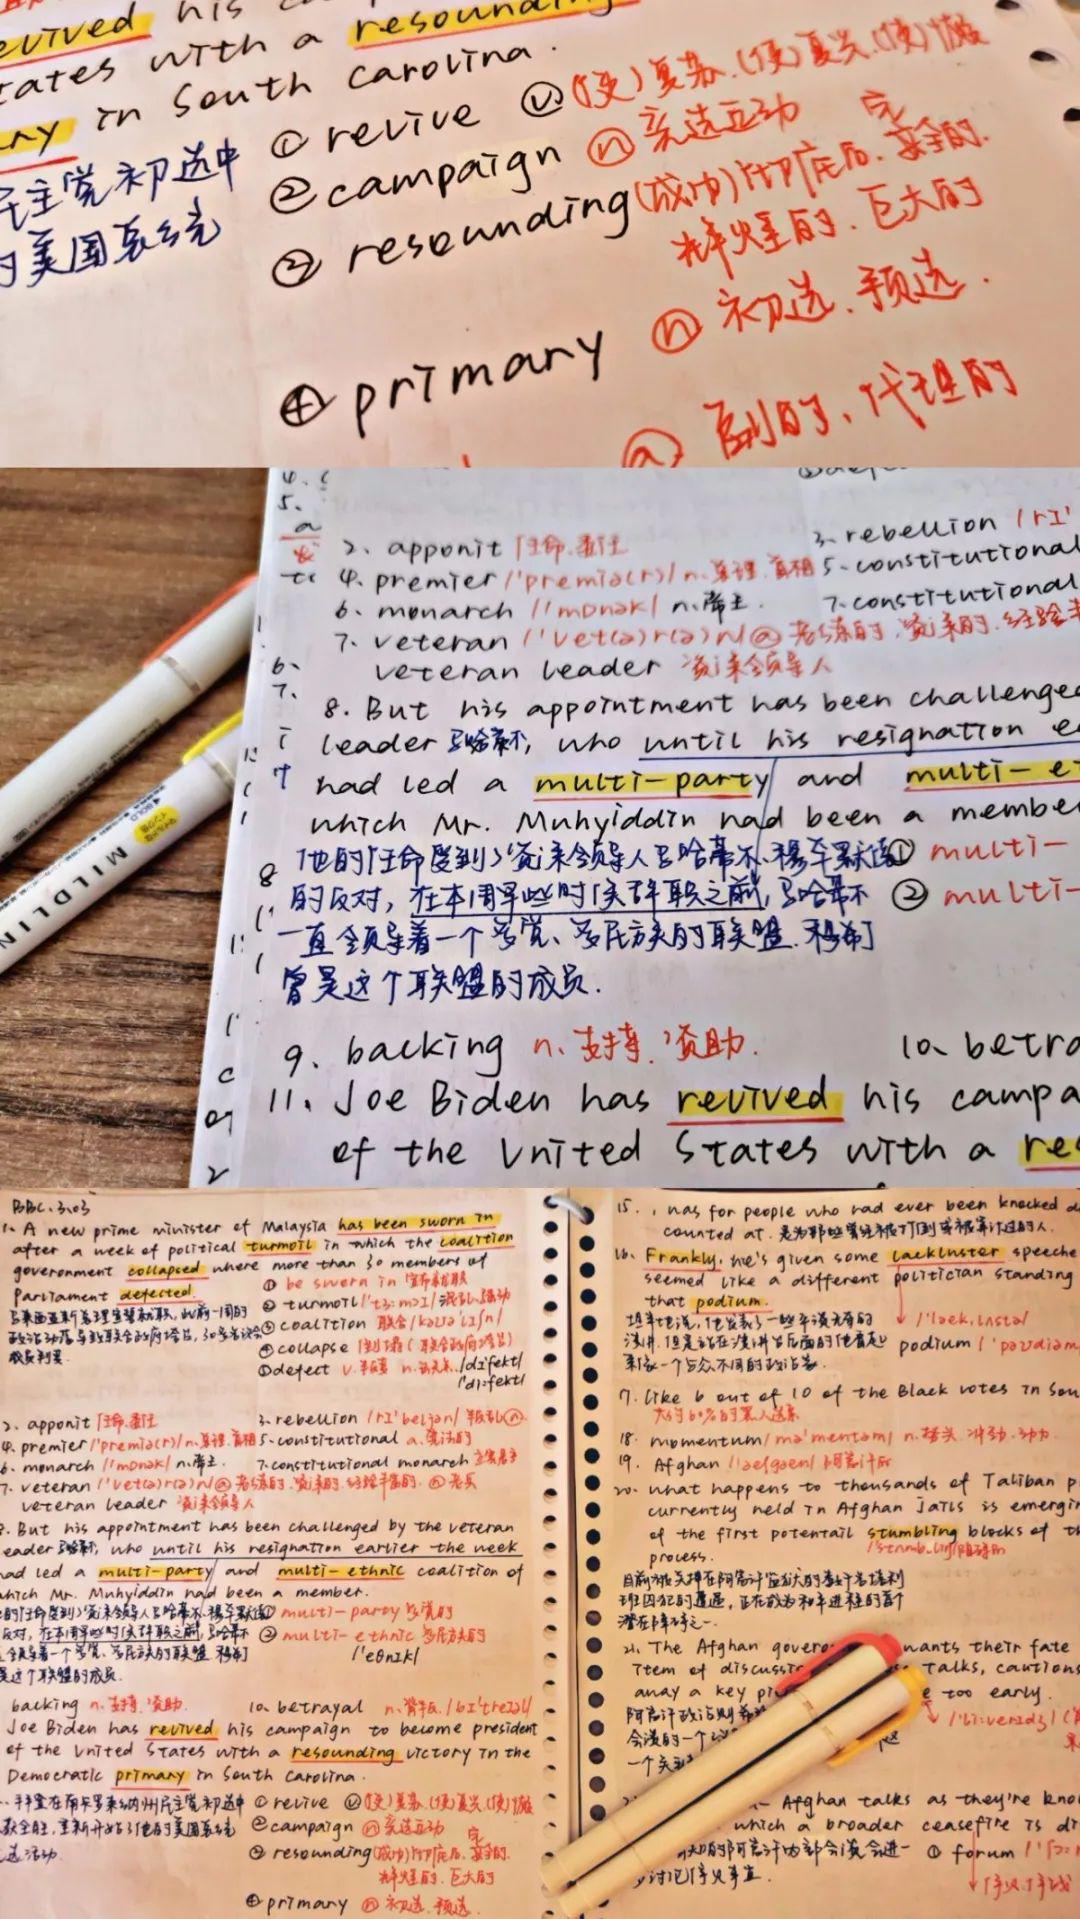 revived his
states with a resounding
in South Carolina.
民主党初选中
的美国总统
① revive ⓥ (使)复苏.(使)复兴.(使)
② campaign ⓝ 竞选互动
③ resounding (成功)彻底后. 完全的.
辉煌的. 巨大的
④ primary ⓝ 初选. 预选.
ⓐ 副的、代理的
2. apponit 任命.委任
3. rebellion /rɪ'
4. premier /'premiə(r)/ n. 总理. 首相
5. constitutional
6. monarch /'mɒnək/ n. 帝主.
7. constitutional
7. veteran /'vet(ə)r(ə)n/ ⓐ 老练的. 资深的. 经验丰
veteran leader 资深领导人
8. But his appointment has been challenged
leader 马哈蒂尔, who until his resignation ea
had led a multi-party and multi-e
which Mr. Muhyiddin had been a member
他的任命受到了资深领导人马哈蒂尔.穆罕默德
① multi-
的反对, 在本周早些时候辞职之前, 马哈蒂尔
② multi-
一直领导着一个多党、多民族的联盟. 穆希丁
曾是这个联盟的成员.
9. backing n. 支持. 资助.
10. betra
11. Joe Biden has revived his campa
of the United States with a res
MILDLIN
BBC.3.03
1. A new prime minister of Malaysia has been sworn in
after a week of political turmoil in which the coalition
government collapsed where more than 30 members of
Parliament defected.
① be sworn in 宣布就职
② turmoil /'tɜːmɔɪl/ 混乱.骚动
③ coalition 联合 /kəʊə'lɪʃn/
④ collapse 倒塌 (联合政府垮台)
⑤ defect v. 叛变 n. /dɪ'fekt/
/'diːfekt/
2. apponit 任命.委任
3. rebellion /rɪ'beljən/ 叛乱ⓝ.
4. premier /'premiə(r)/ n. 总理. 首相
5. constitutional a. 宪法的
6. monarch /'mɒnək/ n. 帝主.
7. constitutional monarch 立宪君主
7. veteran /'vet(ə)r(ə)n/ ⓐ 老练的. 资深的. 经验丰富的. ⓝ 老兵
veteran leader 资深领导人
8. But his appointment has been challenged by the veteran
leader 马哈蒂尔, who until his resignation earlier the week
had led a multi-party and multi-ethnic coalition of
which Mr. Muhyiddin had been a member.
的任命受到了资深领导人马哈蒂尔.穆罕默德
① multi-party 多党的
反对, 在本周早些时候辞职之前, 马哈蒂尔
② multi-ethnic 多民族的
直领导着一个多党、多民族的联盟. 穆希丁
/'eθnɪk/
是这个联盟的成员.
backing n. 支持. 资助.
10. betrayal n. 背叛. /bɪ'treɪəl/
Joe Biden has revived his campaign to become president
of the United States with a resounding victory in the
Democratic primary in South Carolina.
拜登在南卡罗来纳州民主党初选中
获全胜, 重新开始了他的美国总统
选活动.
① revive ⓥ (使)复苏.(使)复兴.(使)
② campaign ⓝ 竞选互动
③ resounding (成功)彻底后. 完全的.
辉煌的. 巨大的
④ primary ⓝ 初选. 预选.
15. , was for people who had ever been knocked d
counted at. 是为那些曾经被打倒或被算计过的人.
16. Frankly, he's given some lackluster speeche
seemed like a different politician standing
that podium.
/'læk,lʌstə/
坦率地说, 他发表了一些平淡无奇的
演讲. 但是站在演讲台后面的他看起
podium /'pəʊdiəm
来像一个与众不同的政治家.
17. like 6 out of 10 of the Black votes in Sou
大约60%的黑人选票
18. momentum /mə'mentəm/ n. 势头. 冲劲. 动力
19. Afghan /'æfgæn/ 阿富汗人
20. what happens to thousands of Taliban p
currently held in Afghan jails is emergin
of the first potentail stumbling blocks of th
process.
目前被关押在阿富汗监狱的数千名塔利
班囚犯的遭遇, 正在成为和平进程的首个
潜在障碍之一.
21. The Afghan gover wants their fate
item of discussi talks, cautions
away a key pi e too early.
会议的一个
Afghan talks as they're kno
which a broader ceasefire is di
阿富汗内部会议会进一
① forum
讨论停火事宜.